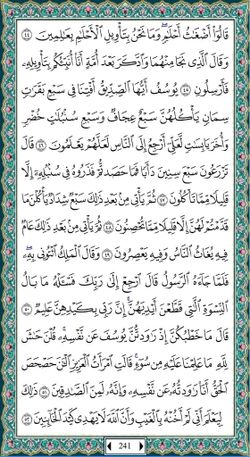 قَالُوٓاْ أَضۡغَٰثُ أَحۡلَٰمٖۖ وَمَا نَحۡنُ بِتَأۡوِيلِ ٱلۡأَحۡلَٰمِ بِعَٰلِمِينَ ٤٤
وَقَالَ ٱلَّذِي نَجَا مِنۡهُمَا وَٱدَّكَرَ بَعۡدَ أُمَّةٍ أَنَا۠ أُنَبِّئُكُم بِتَأۡوِيلِهِۦ
فَأَرۡسِلُونِ ٤٥ يُوسُفُ أَيُّهَا ٱلصِّدِّيقُ أَفۡتِنَا فِي سَبۡعِ بَقَرَٰتٖ
سِمَانٖ يَأۡكُلُهُنَّ سَبۡعٌ عِجَافٞ وَسَبۡعِ سُنۢبُلَٰتٍ خُضۡرٖ
وَأُخَرَ يَابِسَٰتٖ لَّعَلِّيٓ أَرۡجِعُ إِلَى ٱلنَّاسِ لَعَلَّهُمۡ يَعۡلَمُونَ ٤٦ قَالَ
تَزۡرَعُونَ سَبۡعَ سِنِينَ دَأَبٗا فَمَا حَصَدتُّمۡ فَذَرُوهُ فِي سُنۢبُلِهِۦٓ إِلَّا
قَلِيلٗا مِّمَّا تَأۡكُلُونَ ٤٧ ثُمَّ يَأۡتِي مِنۢ بَعۡدِ ذَٰلِكَ سَبۡعٞ شِدَادٞ يَأۡكُلۡنَ مَا
قَدَّمۡتُمۡ لَهُنَّ إِلَّا قَلِيلٗا مِّمَّا تُحۡصِنُونَ ٤٨ ثُمَّ يَأۡتِي مِنۢ بَعۡدِ ذَٰلِكَ عَامٞ
فِيهِ يُغَاثُ ٱلنَّاسُ وَفِيهِ يَعۡصِرُونَ ٤٩ وَقَالَ ٱلۡمَلِكُ ٱئۡتُونِي بِهِۦۖ
فَلَمَّا جَآءَهُ ٱلرَّسُولُ قَالَ ٱرۡجِعۡ إِلَىٰ رَبِّكَ فَسۡـَٔلۡهُ مَا بَالُ
ٱلنِّسۡوَةِ ٱلَّٰتِي قَطَّعۡنَ أَيۡدِيَهُنَّۚ إِنَّ رَبِّي بِكَيۡدِهِنَّ عَلِيمٞ ٥٠
قَالَ مَا خَطۡبُكُنَّ إِذۡ رَٰوَدتُّنَّ يُوسُفَ عَن نَّفۡسِهِۦۚ قُلۡنَ حَٰشَ
لِلَّهِ مَا عَلِمۡنَا عَلَيۡهِ مِن سُوٓءٖۚ قَالَتِ ٱمۡرَأَتُ ٱلۡعَزِيزِ ٱلۡـَٰٔنَ حَصۡحَصَ
ٱلۡحَقُّ أَنَا۠ رَٰوَدتُّهُۥ عَن نَّفۡسِهِۦ وَإِنَّهُۥ لَمِنَ ٱلصَّٰدِقِينَ ٥١ ذَٰلِكَ
لِيَعۡلَمَ أَنِّي لَمۡ أَخُنۡهُ بِٱلۡغَيۡبِ وَأَنَّ ٱللَّهَ لَا يَهۡدِي كَيۡدَ ٱلۡخَآئِنِينَ ٥٢
241